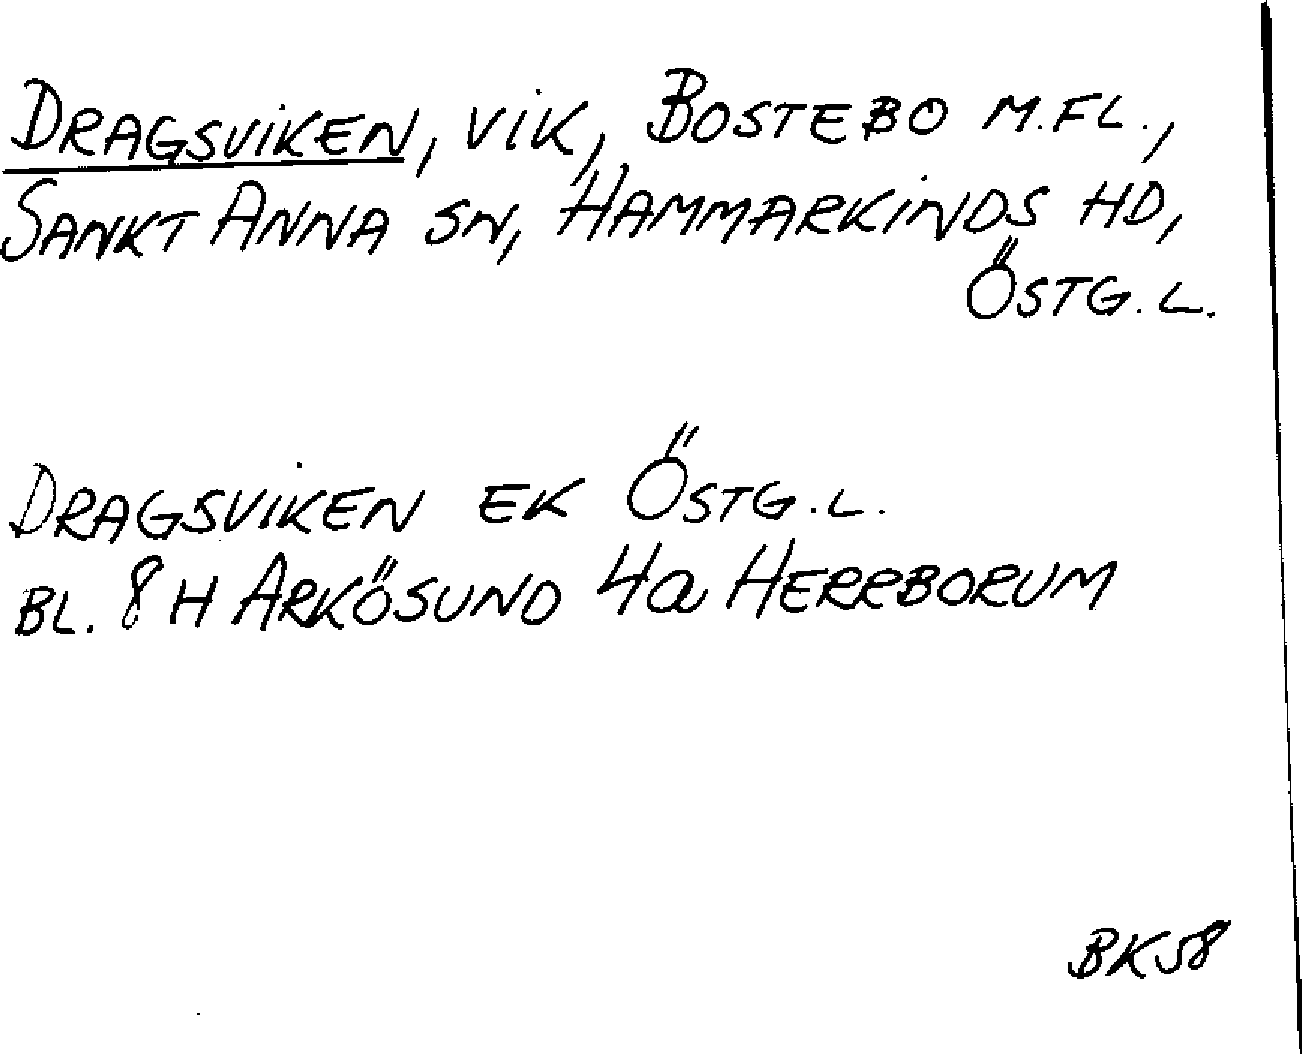 DRAGSVIKEN, VIK, BOSTEBO M.FL.,
SANKT ANNA SN, HAMMARKINDS HD,
ÖSTG.L.
DRAGSVIKEN EK ÖSTG.L.
BL. 8H ARKÖSUND 4a HERRBORUM
BK58